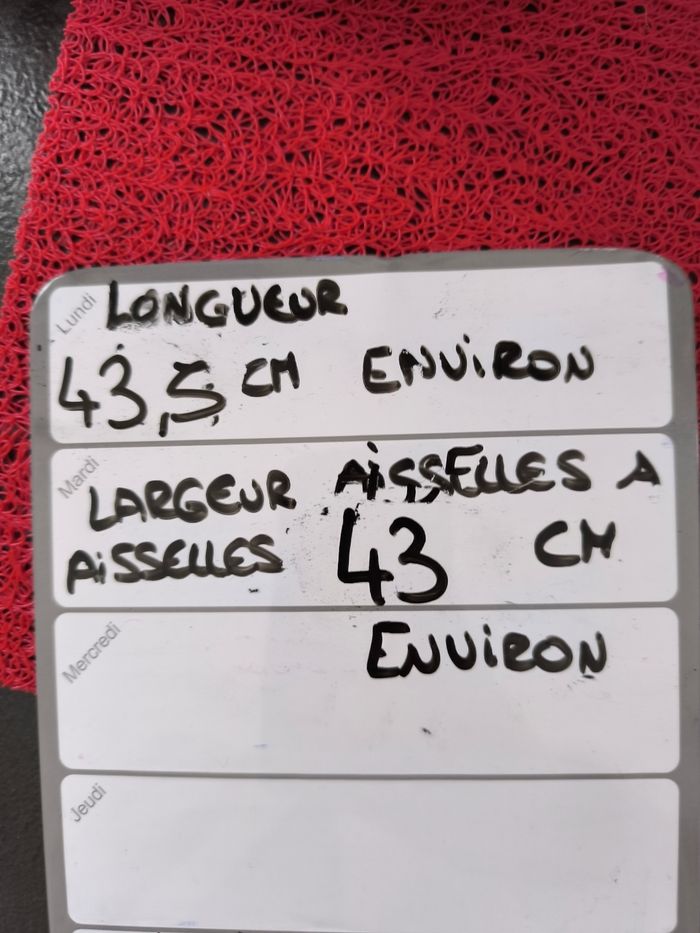 Lundi
LONGUEUR
43,5 CM ENViRON
Mardi
LARGEUR AiSSELLES A
AiSSELLES 43 CM
Mercredi
ENViRON
Jeudi